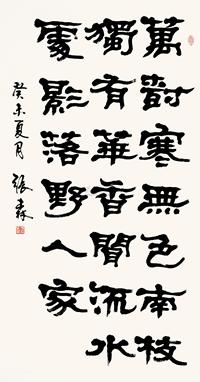 萬樹寒無色南枝
獨有華香聞流水
處影落野人家
癸未夏月 張森